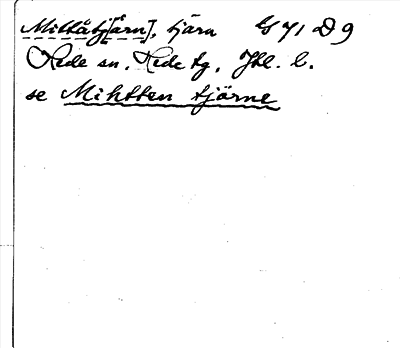 Mittåtj[ärn], tjärn GS 71 D 9
Hede sn. Hede tg, Jtl. l.
se Mihtten tjärne